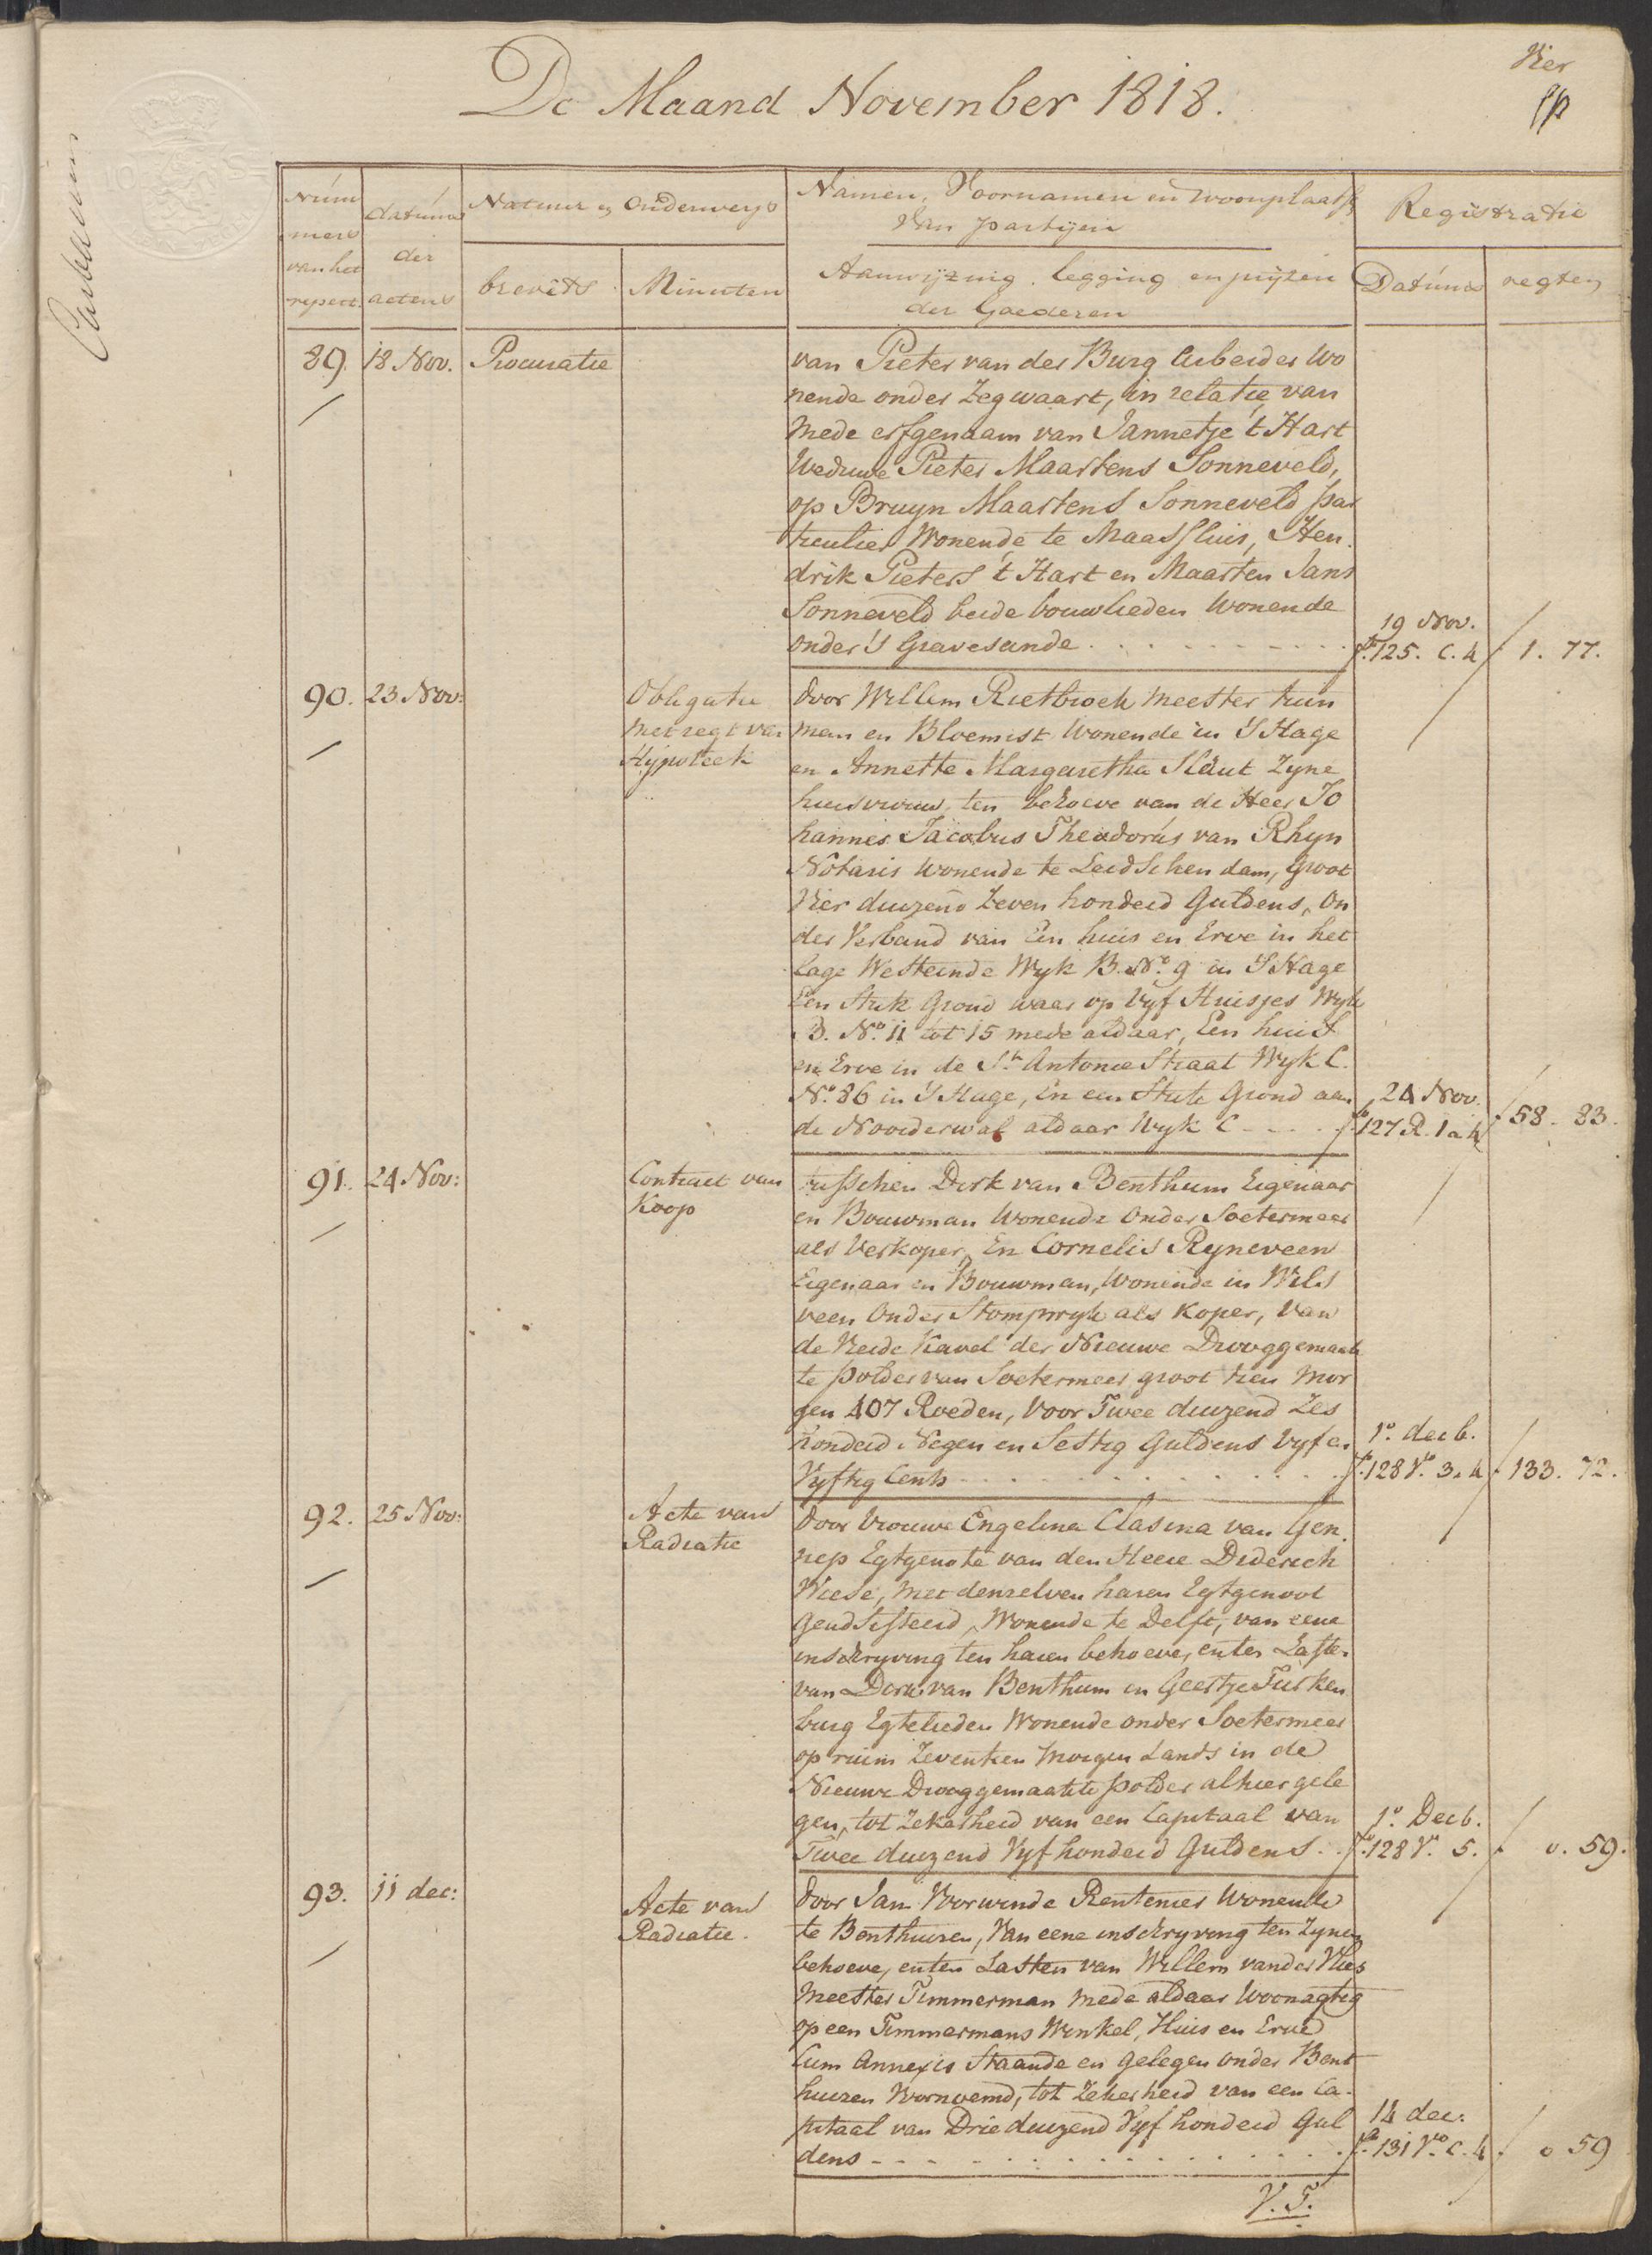 Vier
De Maand November 1818.
Núm
mers
van het
repert.
datúms
der
actens
Natuur en Onderwerp
brevets
Minuten
Namen, Voornamen en Woonplaatse
Van partijen
Aanwijzing, legging en prijzen
der Goederen
Registratie
Datúms
regten
89. 18 Nov. Procuratie
van Pieter van der Burg Arbeider Wo
nende onder Zegwaart, in relatie van
Mede erfgenaam van Jannetje 't Hart
Weduwe Pieter Maartens Sonneveld,
op Bruyn Maartens Sonneveld par
ticulier Wonende te Maassluis, Hen.
drik Pieters 't Hart en Maarten Jans
Sonneveld beide bouwlieden Wonende
onder 's Gravesande
19 Nov.
fo. 125. C. 4 f 1. 77.
90. 23 Nov:
Obligatie
met regt van
Hijpoteek
door Willem Rietbroek Meester tuin
man en Bloemist Wonende in 'S Hage
en Annette Margaretha Slaut Zyne
huisvrouw, ten behoeve van de Heer Jo
hannes Jacobus Theodorús van Rhyn
Notaris Wonende te Leidschendam, groot
Vier duizend Zeven honderd Guldens, On
der Verband van Een huis en Erve in het
lage Westeinde Wyk B. No. 9 in 'S Hage
Een Stuk Grond waar op Vyf Huisjes Wyk
B. No. 11 tot 15 mede aldaar, Een huis
en Erve in de St. Antonie Straat Wyk C.
No. 86 in 'S Hage, En een Stuk Grond aan
de Noorderwal aldaar Wyk C
24 Nov.
fo. 127 R. 1 a 4 f 58. 83.
91. 24 Nov:
Contract van
Koop
tusschen Dirk van Benthum Eigenaar
en Bouwman Wonende Onder Soetermeer
als Verkoper, En Cornelis Ryneveen
Eigenaar en Bouwman, Wonende in Wils
veen Onder Stompwyk als Koper, Van
de Vierde Kavel der Nieuwe Drooggemaak
te polder van Soetermeer groot tien Mor
gen 407 Roeden, Voor Twee duizend Zes
honderd Negen en Sestig Guldens Vyf en
Vyftig Cents
1o. decb.
fo. 128 Vo. 3. 4 f 133. 72.
92. 25 Nov:
Acte van
Radiatie
door Vrouwe Engelina Clasina van Gen.
nep Egtgenote van den Heere Diderich
Wiese, Met denzelven haren Egtgenoot
geadsisteerd, Wonende te Delft, van eene
inschryving ten haren behoeve, en ten Laste
van Dirk van Benthum en Geertje Turken
burg Egtelieden Wonende onder Soetermeer
op ruim Zeventien Morgen Lands in de
Nieuwe Drooggemaakte polder alhier gele
gen, tot Zekerheid van een Capitaal van
Twee duizend Vyf honderd Guldens
1o. Decb.
fo. 128 Vo. 5. f 0. 59.
93. 11 dec:
Acte van
Radiatie.
door Jan Voorwinde Rentenier Wonende
te Benthuizen, Van eene inschryving ten Zynen
behoeve, en ten Lasten van Willem vander Vlies
Meester Timmerman Mede aldaar Woonagtig
op een Timmermans Winkel, Huis en Erve
Cum Annexis Staande en gelegen onder Bent
huizen Voornoemd, tot Zekerheid van een Ca.
pitaal van Drieduizend Vyf honderd Gul
dens
14 dec.
fo. 131 Vo. C. 4 f 0 59
V. T.